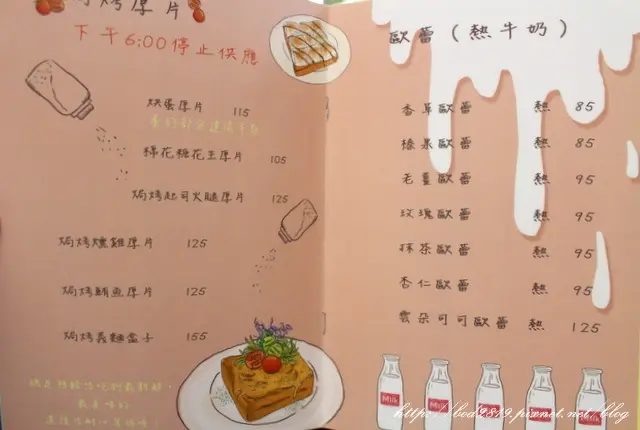 焗烤厚片
下午6:00停止供應
烘蛋厚片 115
棉花糖花生厚片 105
焗烤起司火腿厚片 125
焗烤燻雞厚片 125
焗烤鮪魚厚片 125
焗烤義麵盒子 155
歐蕾(熱牛奶)
香草歐蕾 熱 85
榛果歐蕾 熱 85
老薑歐蕾 熱 95
玫瑰歐蕾 熱 95
抹茶歐蕾 熱 95
杏仁歐蕾 熱 95
雲朵可可歐蕾 熱 125
Milk
Milk
Milk
Milk
Milk